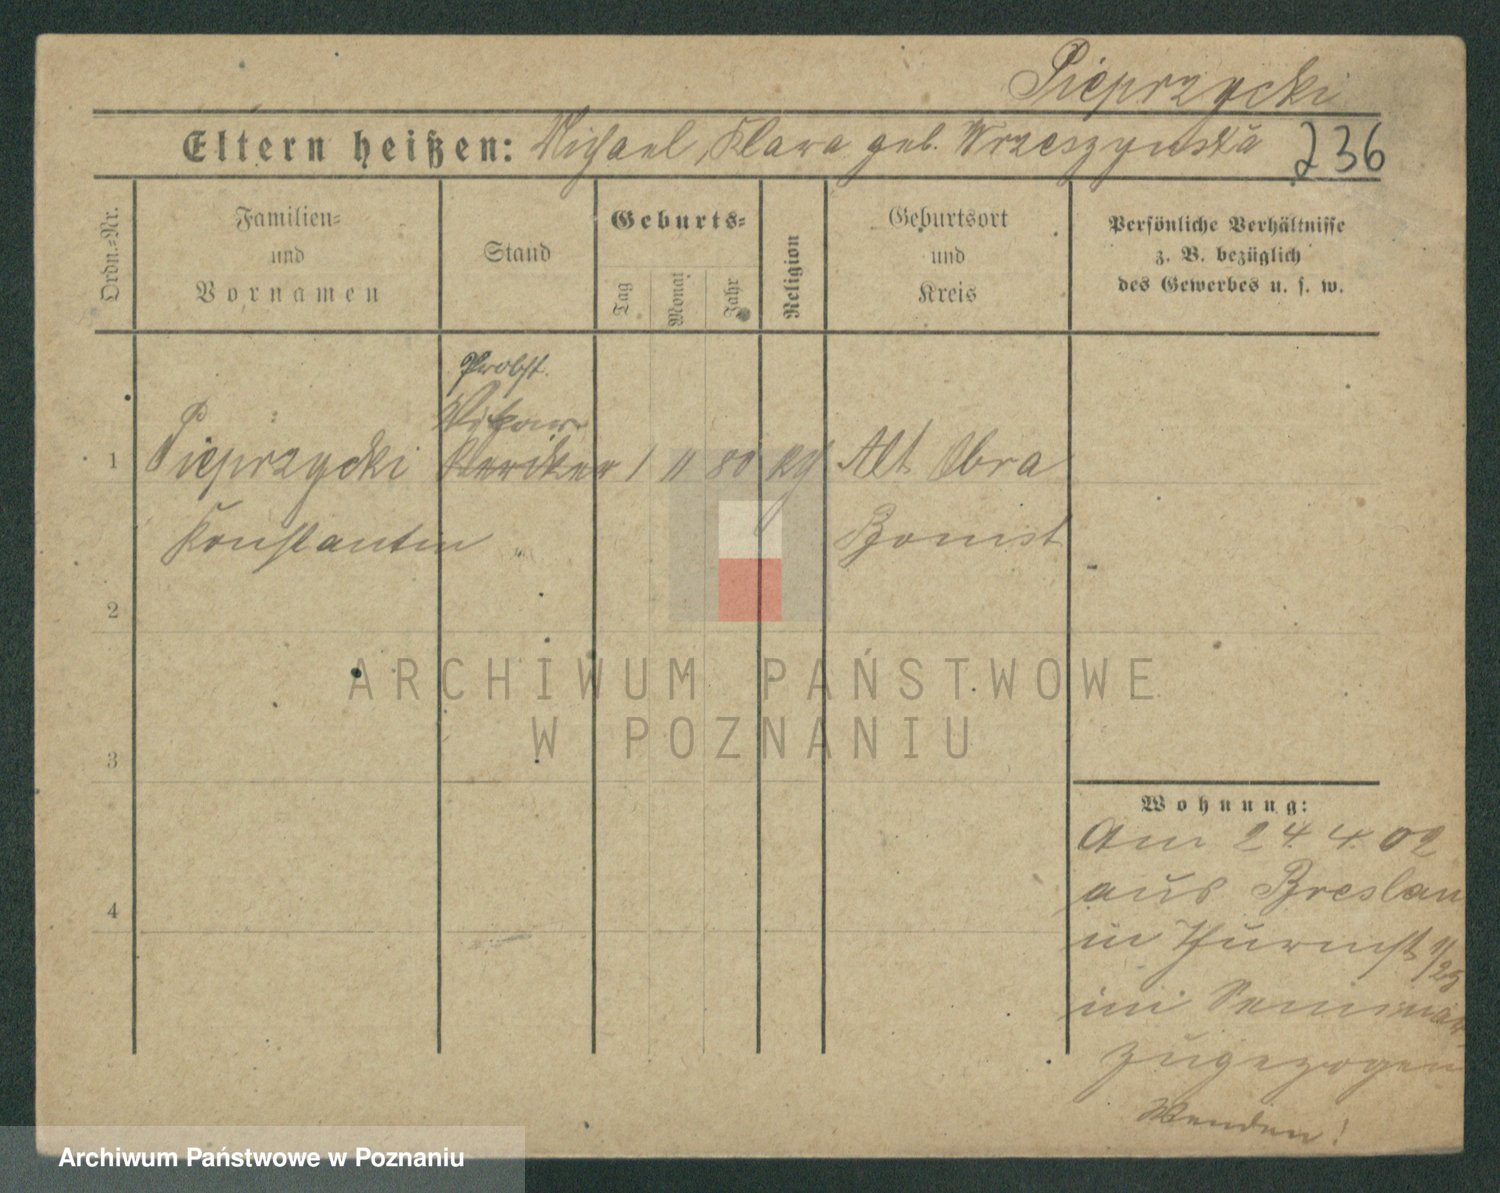 Pieprzycki
Eltern heißen: Michael, Klara geb. Wrzeszynska 236
Ordn.=Nr.
Familien=
und
Vornamen
Stand
Geburts=
Tag
Monat
Jahr
Religion
Geburtsort
und
Kreis
Persönliche Verhältnisse
z. B. bezüglich
des Gewerbes u. s. w.
Probst.
Vikar
1 Pieprzycki Kleriker 1 11 80 Alt Obra
Konstantin Bomst
2
ARCHIWUM PAŃSTWOWE
W POZNANIU
3
Wohnung:
Am 24 4. 02
aus Breslau
in
im Seminar
zugezogen
Wenden!
4
Archiwum Państwowe w Poznaniu